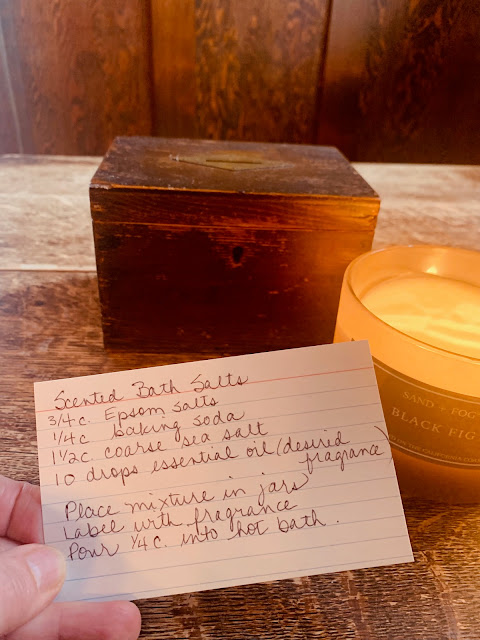 Scented Bath Salts
3/4 c. Epsom salts
1/4 c baking soda
1 1/2 c. coarse sea salt
10 drops essential oil (desired
fragrance)
Place mixture in jars
Label with fragrance
Pour 1/4 c. into hot bath.
SAND + FOG
BLACK FIG